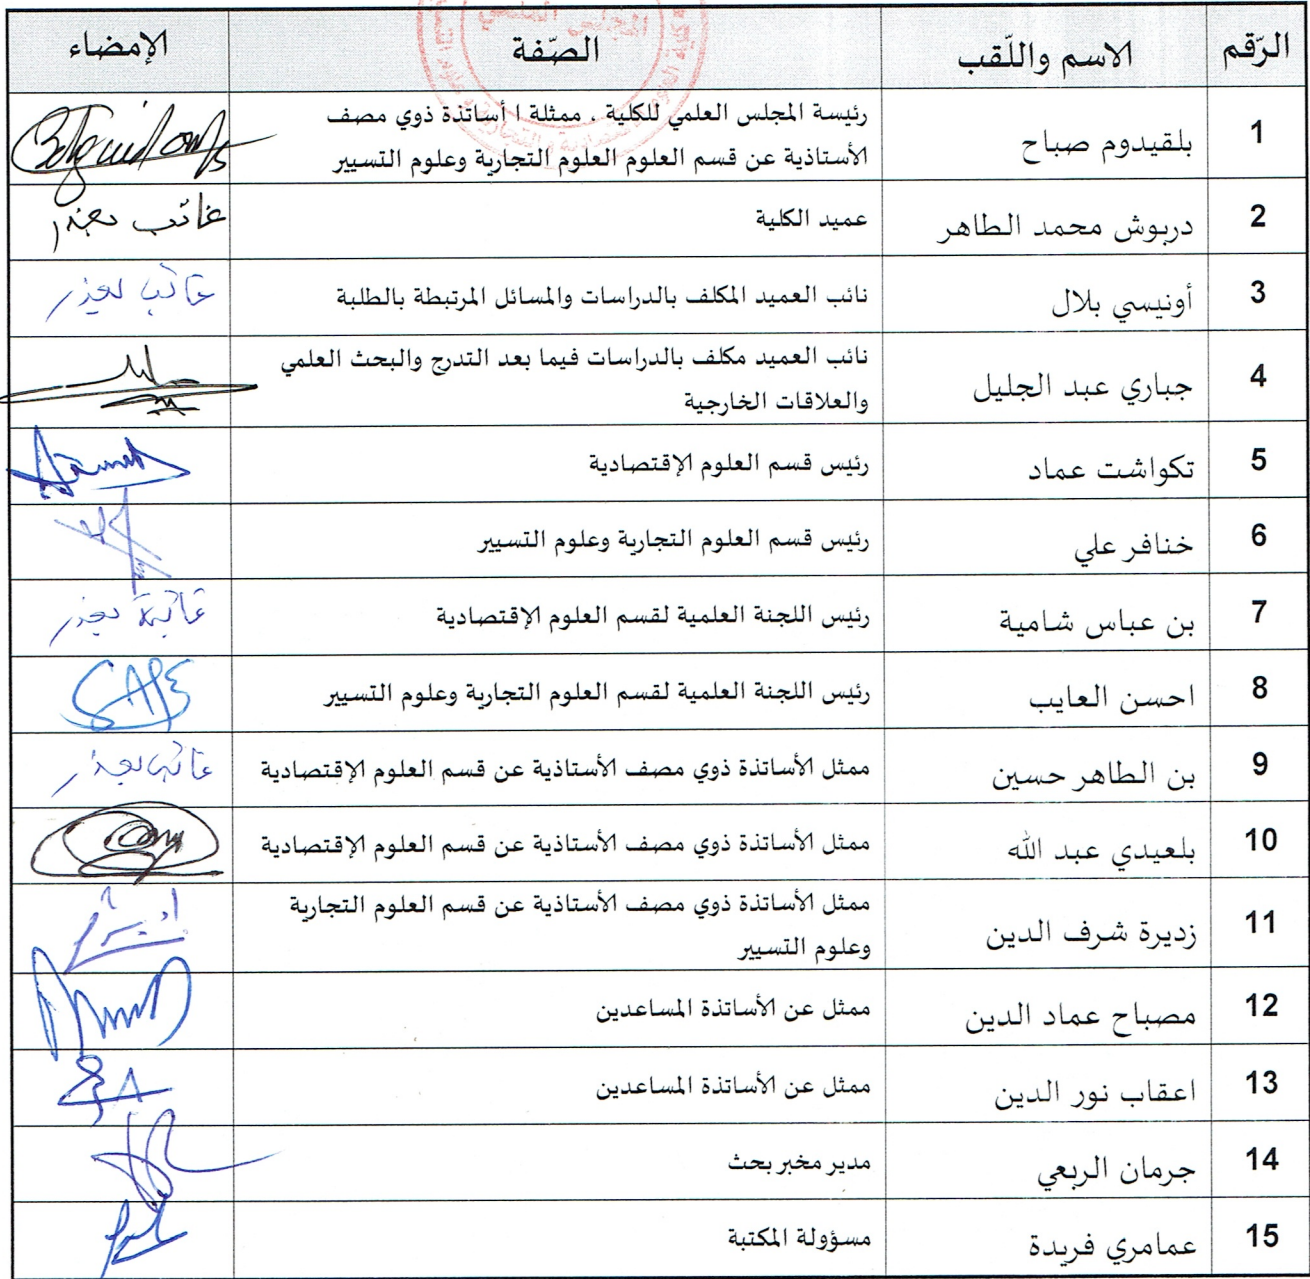 الرّقم الاسم واللّقب الصّفة الإمضاء
المجلس العلمي
1 بلقيدوم صباح رئيسة المجلس العلمي للكلية ، ممثلة ا أساتذة ذوي مصف
الأستاذية عن قسم العلوم العلوم التجارية وعلوم التسيير
2 دربوش محمد الطاهر عميد الكلية غائب بعذر
3 أونيسي بلال نائب العميد المكلف بالدراسات والمسائل المرتبطة بالطلبة غائب بعذر
4 جباري عبد الجليل نائب العميد مكلف بالدراسات فيما بعد التدرج والبحث العلمي
والعلاقات الخارجية
5 تكواشت عماد رئيس قسم العلوم الإقتصادية
6 خنافر علي رئيس قسم العلوم التجارية وعلوم التسيير
7 بن عباس شامية رئيس اللجنة العلمية لقسم العلوم الإقتصادية غائبة بعذر
8 احسن العايب رئيس اللجنة العلمية لقسم العلوم التجارية وعلوم التسيير
9 بن الطاهر حسين ممثل الأساتذة ذوي مصف الأستاذية عن قسم العلوم الإقتصادية غائب بعذر
10 بلعيدي عبد الله ممثل الأساتذة ذوي مصف الأستاذية عن قسم العلوم الإقتصادية
11 زديرة شرف الدين ممثل الأساتذة ذوي مصف الأستاذية عن قسم العلوم التجارية
وعلوم التسيير
12 مصباح عماد الدين ممثل عن الأساتذة المساعدين
13 اعقاب نور الدين ممثل عن الأساتذة المساعدين
14 جرمان الربعي مدير مخبر بحث
15 عمامري فريدة مسؤولة المكتبة